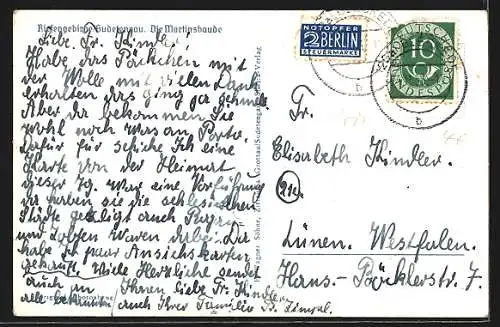 Riesengebirge-Sudetengau. Die Martinsbaude
Liebe Fr. Kindler!
Habe das Päckchen mit
der Wolle mit vielen Dank
erhalten das ging ja schnell.
Aber da bekommen Sie
wohl noch was an Porto.
Dafür schicke Ich eine
Karte von der Heimat
dieser Tg. war eine Vorführung
da haben sie die schlesischen
Städte gezeigt auch
und Zobten waren dabei. Da
habe ich paar Ansichtskarten
gekauft. Viele Herzliche sendet
auch an Ihnen liebe Fr. Kindler
alle bekannten auch Ihrer Familie Fr.
NOTOPFER
2 BERLIN
STEUERMARKE
DEUTSCHE
BUNDESPOST
10
b
b
Fr.
Elisabeth Kindler.
Lünen. Westfalen.
Hans-Böcklerstr. 7.